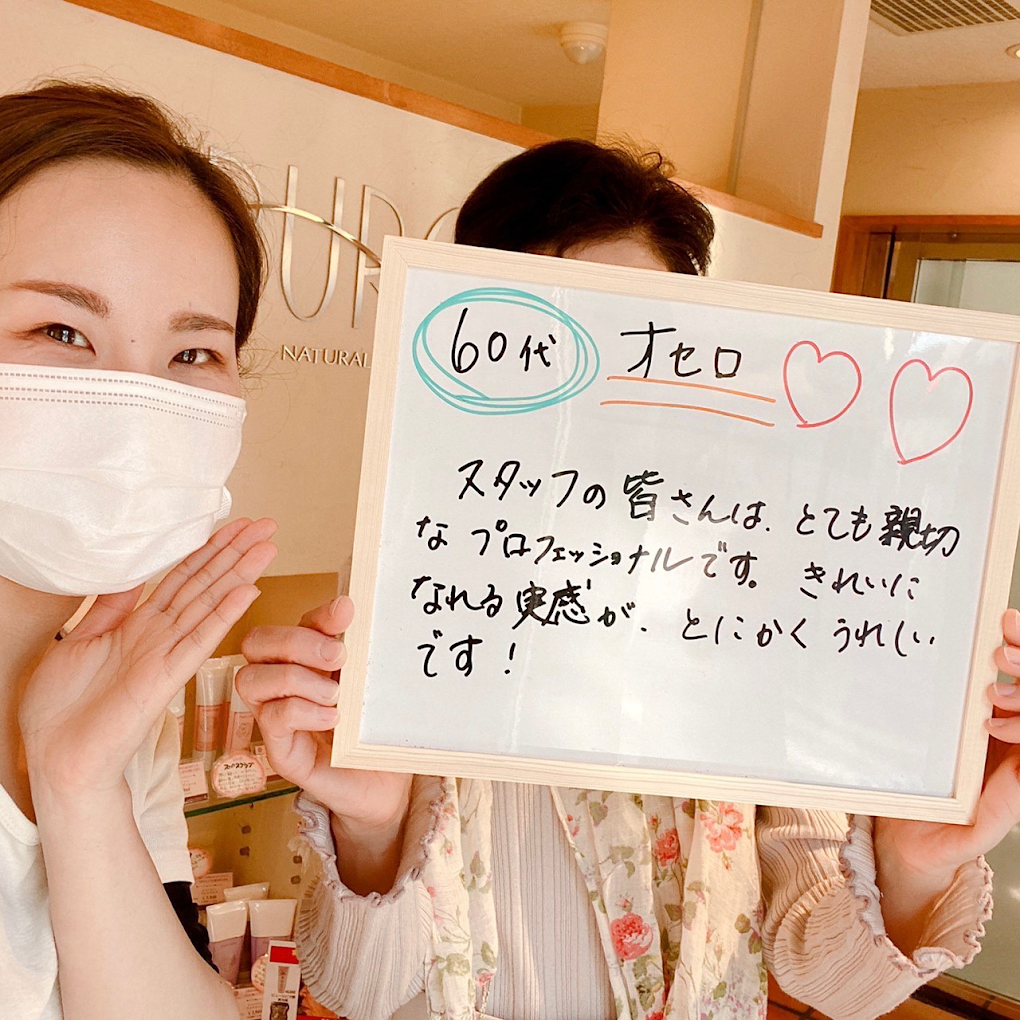 NATURAL
60代 オセロ
スタッフの皆さんは、とても親切
なプロフェッショナルです。きれいに
なれる実感が、とにかくうれしい
です!